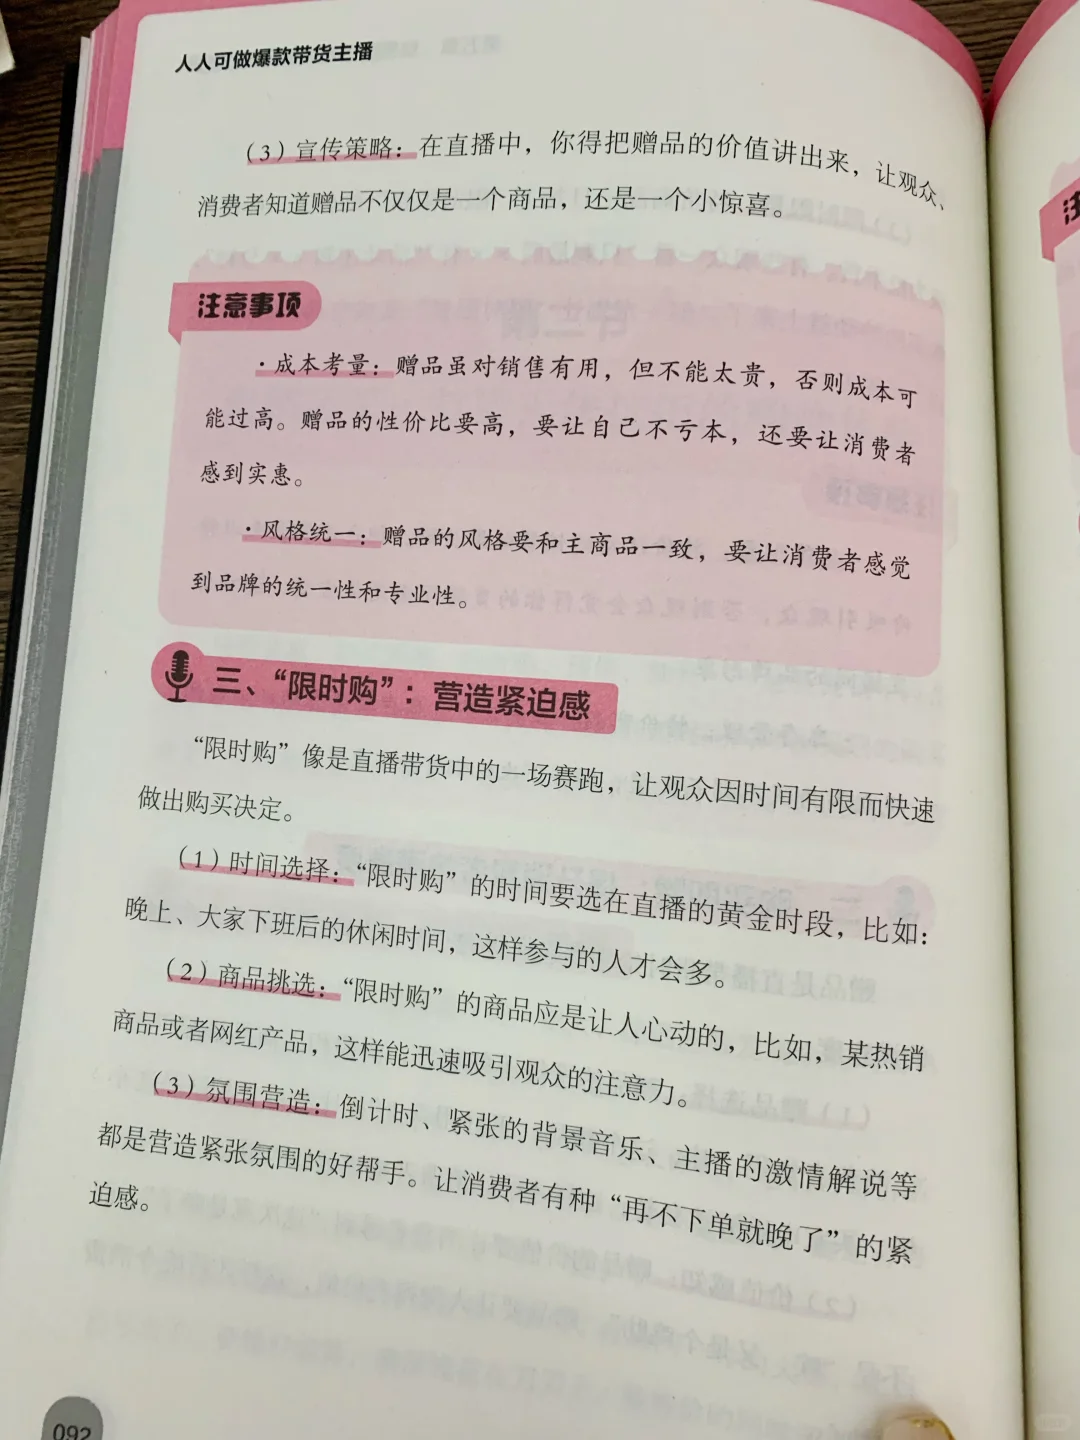 人人可做爆款带货主播
（3）宣传策略：在直播中，你得把赠品的价值讲出来，让观众、
消费者知道赠品不仅仅是一个商品，还是一个小惊喜。
注意事项
·成本考量：赠品虽对销售有用，但不能太贵，否则成本可
能过高。赠品的性价比要高，要让自己不亏本，还要让消费者
感到实惠。
·风格统一：赠品的风格要和主商品一致，要让消费者感觉
到品牌的统一性和专业性。
三、“限时购”：营造紧迫感
“限时购”像是直播带货中的一场赛跑，让观众因时间有限而快速
做出购买决定。
（1）时间选择：“限时购”的时间要选在直播的黄金时段，比如：
晚上、大家下班后的休闲时间，这样参与的人才会多。
（2）商品挑选：“限时购”的商品应是让人心动的，比如，某热销
商品或者网红产品，这样能迅速吸引观众的注意力。
（3）氛围营造：倒计时、紧张的背景音乐、主播的激情解说等
都是营造紧张氛围的好帮手。让消费者有种“再不下单就晚了”的紧
迫感。
092